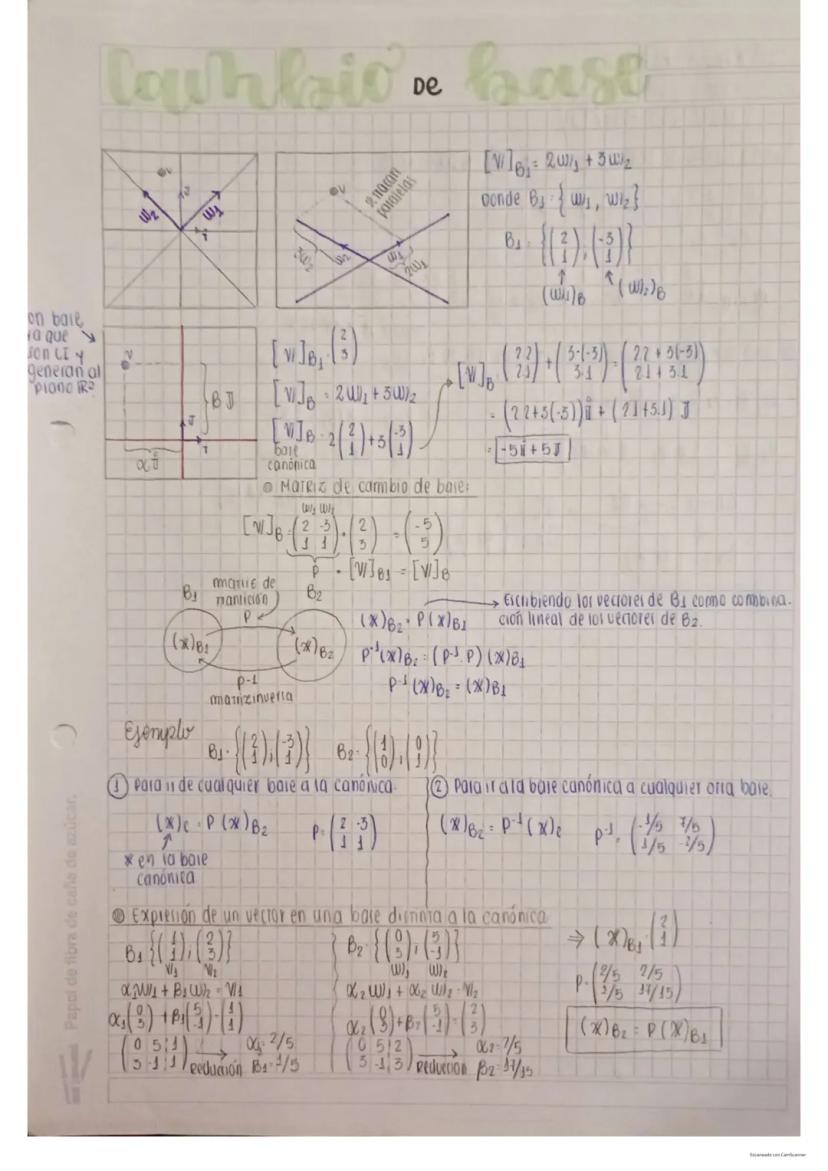 Cambio DE base
[V]B1 = 2W1 + 3W2
Donde B1 = { W1, W2 }
B1 = { (2 1), (-3 1) }
(W1)B (W2)B
V
W2 W1
2 harán paralelas
2W1
on base
ya que
son LI y
generan al
plano R²
[V]B1 = (2 3)
[V]B = 2W1 + 3W2
[V]B = 2 (2 1) + 3 (-3 1)
base
canónica
[V]B = (2·2 2·1) + (3·(-3) 3·1) = (2·2 + 3(-3) 2·1 + 3·1)
= (2·2 + 3(-3)) i + (2·1 + 3·1) J
= -5i + 5J
Matriz de cambio de base:
W1 W2
[V]B = (2 -3 1 1) · (2 3) = (-5 5)
P · [V]B1 = [V]B
B1 matriz de B2
P
(X)B1 (X)B2
P-1
matriz inversa
(X)B2 = P (X)B1 → Escribiendo los vectores de B1 como combina-
ción lineal de los vectores de B2.
P-1 (X)B2 = (P-1 P) (X)B1
P-1 (X)B2 = (X)B1
Ejemplo
B1 = { (2 1), (-3 1) } B2 = { (1 0), (0 1) }
① Para ir de cualquier base a la canónica.
(X)c = P (X)B2 P = (2 -3 1 1)
x en la base
canónica
② Para ir a la base canónica a cualquier otra base.
(X)B2 = P-1 (X)c P-1 = (-1/5 7/5 1/5 -2/5)
Expresión de un vector en una base distinta a la canónica
B1 { (1 1), (2 3) }
V1 V2
α1W1 + B1W2 = V1
α1 (0 3) + B1 (5 -1) = (1 1)
(0 5 | 1 3 -1 | 1) → Reducción α1 = 2/5 B1 = 1/5
B2 = { (0 3), (5 -1) }
W1 W2
α2 W1 + α2 W2 = V2
α2 (0 3) + B2 (5 -1) = (2 3)
(0 5 | 2 3 -1 | 3) → Reducción α2 = 7/5 β2 = 17/15
⇒ (X)B1 = (2 1)
P = (2/5 2/5 1/5 17/15)
(X)B2 = P (X)B1
Papel de fibra de caña de azúcar.
Escaneado con CamScanner